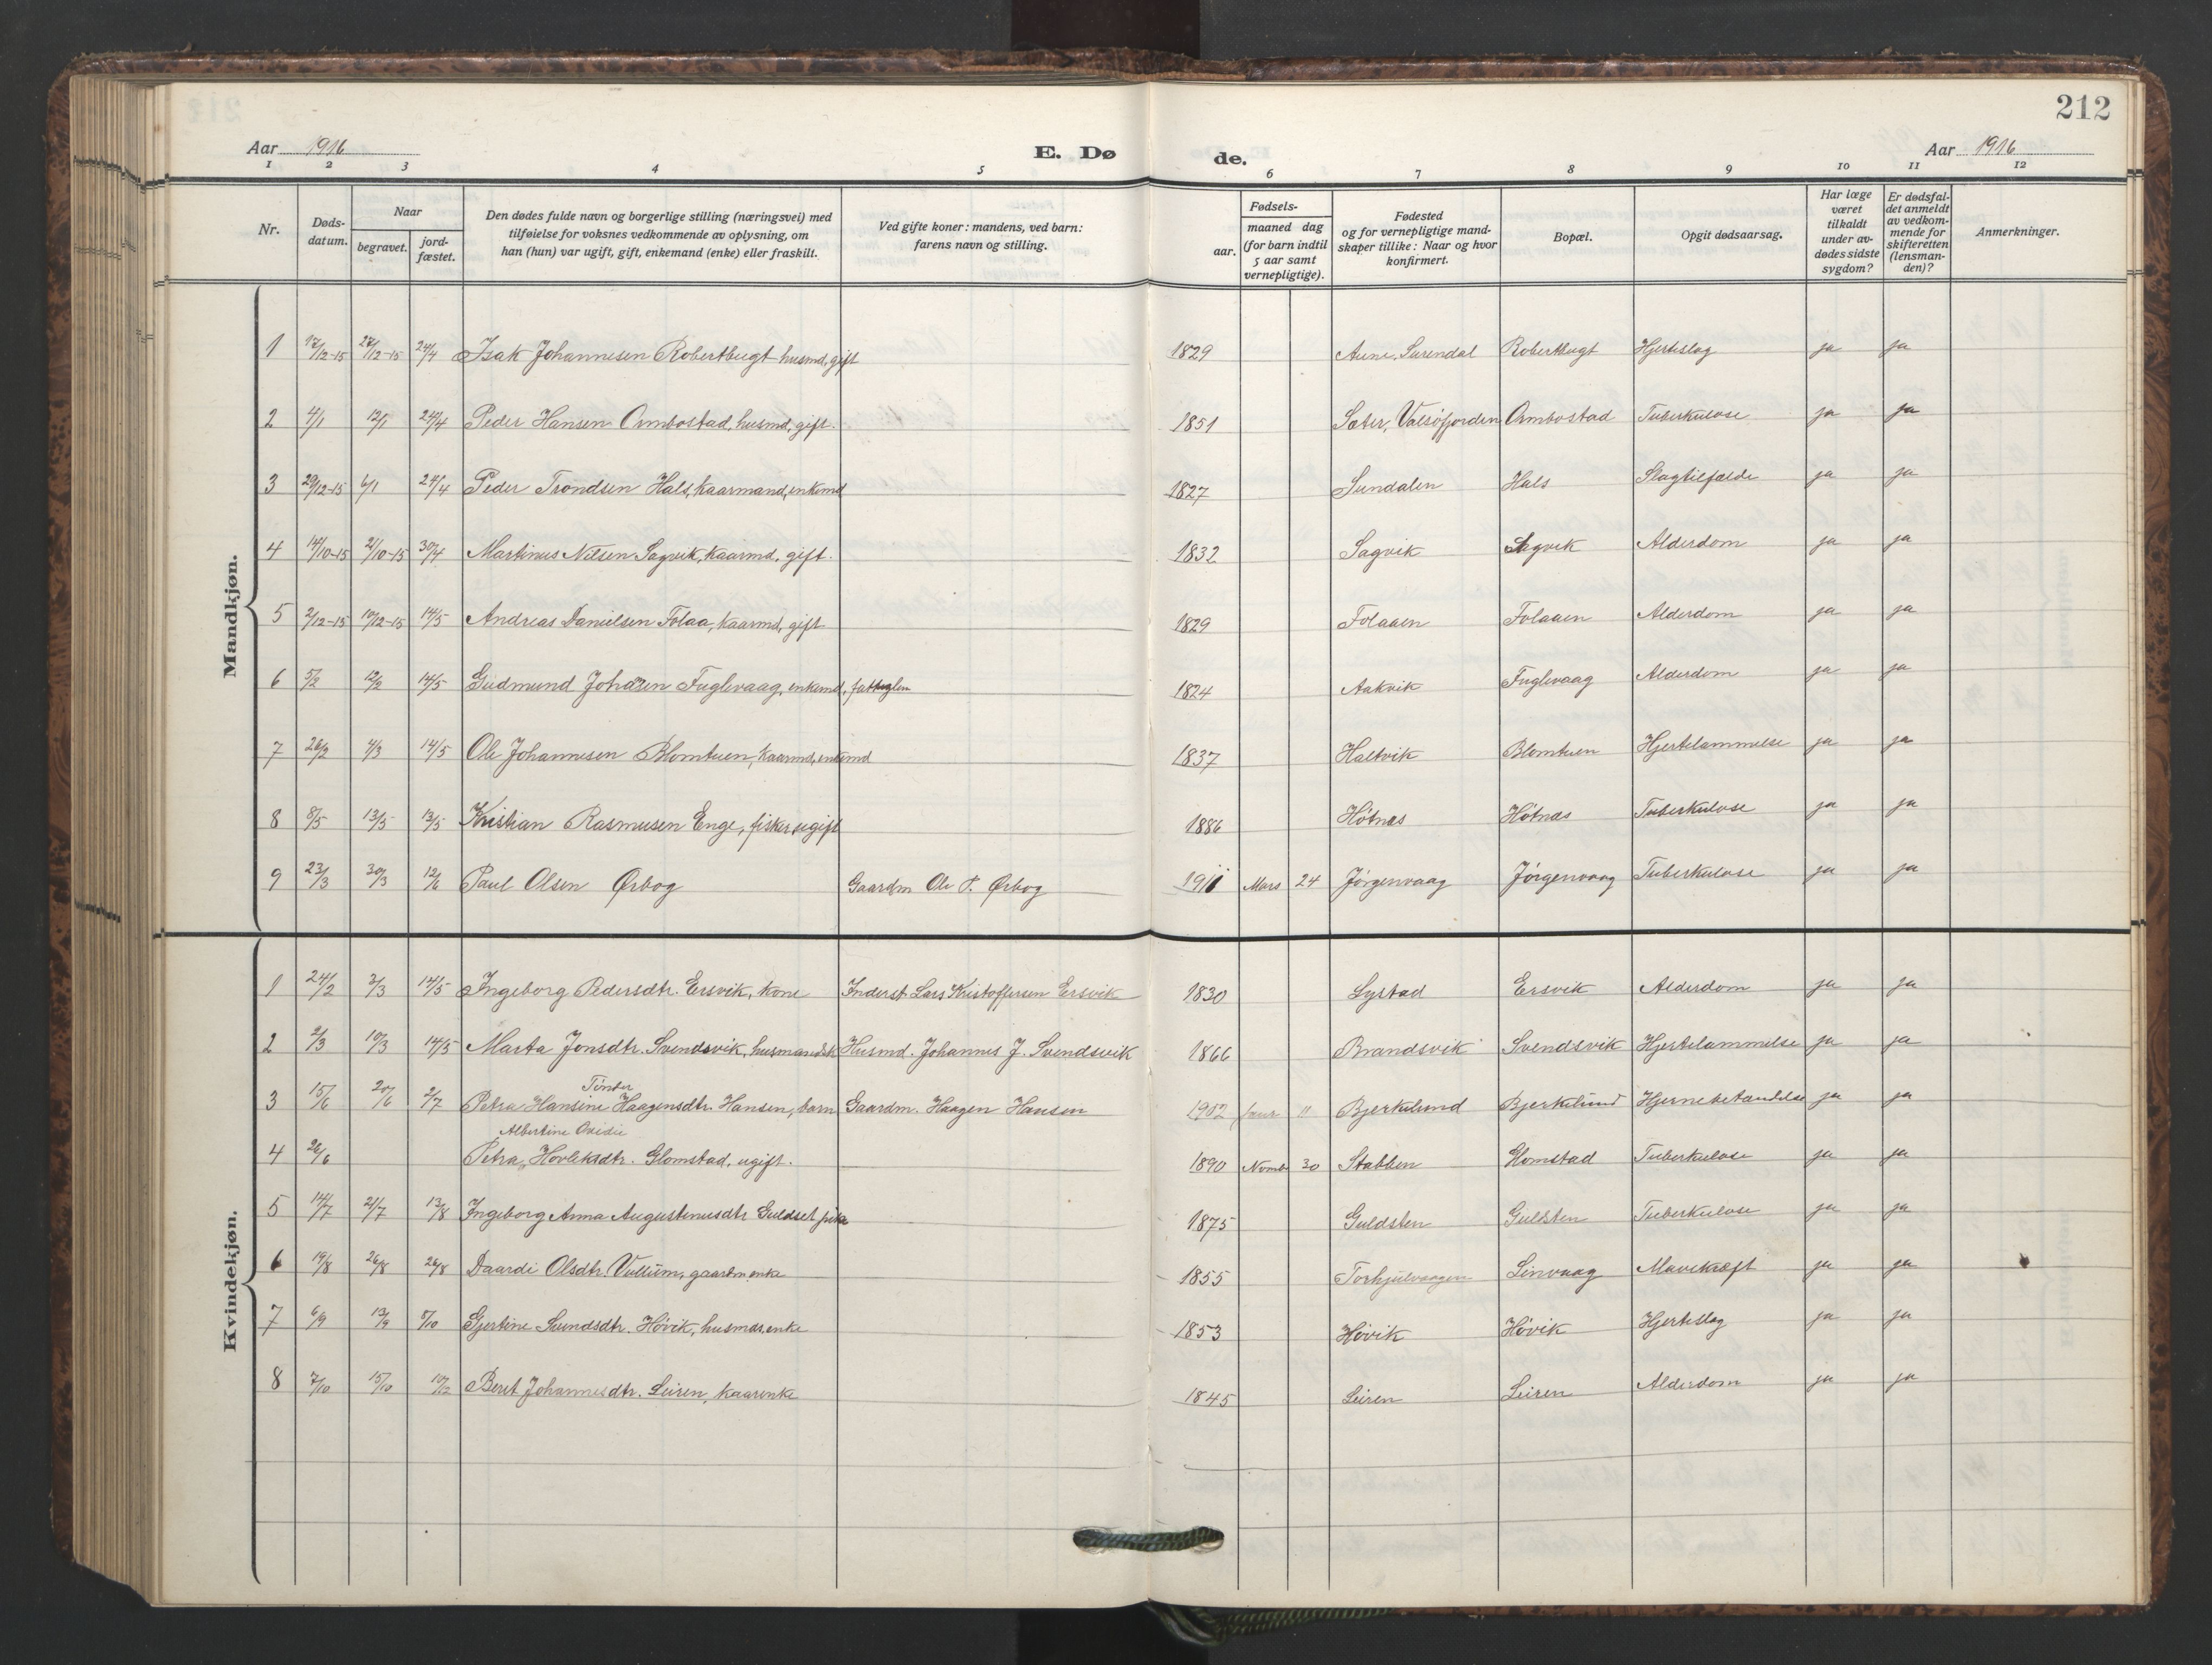 212
Aar 1916 E. Dø de. Aar 1916
1 2 3 4 5 6 7 8 9 10 11 12
Nr. Døds-datum. Naar begravet. jord-fæstet. Den dødes fulde navn og borgerlige stilling (næringsvei) med tilføielse for voksnes vedkommende av oplysning, om han (hun) var ugift, gift, enkemand (enke) eller fraskilt. Ved gifte koner: mandens, ved barn: farens navn og stilling. Fødsels- aar. maaned dag (for barn indtil 5 aar samt vernepligtige). Fødested og for vernepligtige mand-skaper tillike: Naar og hvor konfirmert. Bopæl. Opgit dødsaarsag. Har læge været tilkaldt under av-dødes sidste sygdom? Er dødsfal-det anmeldt av vedkom-mende for skifteretten (lensman-den)? Anmerkninger.
Mandkjøn.
1 17/12-15 27/12-15 24/4 Isak Johannesen Robertbugt husmd, gift 1829 Aune, Surendal Robertbugt Hjerteslag ja ja
2 4/1 12/1 24/4 Peder Hansen Ormbostad, husmd, gift. 1851 Sæter, Valsøfjorden Ormbostad Tuberkulose ja ja
3 29/12-15 6/1 24/4 Peder Trondsen Hals, kaarmand, enkemd 1827 Sundalen Hals Slagtilfælde ja ja
4 14/10-15 2/10-15 30/4 Martinus Nilsen Sagvik, kaarmd, gift. 1832 Sagvik Sagvik Alderdom ja ja
5 2/12-15 10/12-15 14/5 Andreas Danielsen Folaa, kaarmd, gift 1829 Folaaen Folaaen Alderdom ja ja
6 5/2 12/2 14/5 Gudmund Johnsen Fuglevaag, enkemd, fattiglem 1824 Aakvik Fuglevaag Alderdom ja ja
7 26/2 4/3 14/5 Ole Johannesen Blomtuen, kaarmd, enkemd 1837 Haltvik Blomtuen Hjertelammelse ja ja
8 8/5 13/5 13/5 Kristian Rasmusen Enge, fisker, ugift 1886 Høtnæs Høtnæs Tuberkulose ja ja
9 23/3 30/3 12/6 Paul Olsen Ørbog Gaardm Ole P. Ørbog 1911 Mars 24 Jørgenvaag Jørgenvaag Tuberkulose ja ja
Kvindekjøn.
1 24/2 3/3 14/5 Ingeborg Pedersdtr. Ersvik, kone Inderst Lars Kristoffersen Ersvik 1830 Lystad Ersvik Alderdom ja ja
2 2/3 10/3 14/5 Marta Jonsdtr. Svendsvik, husmandsk Husmd. Johannes J. Svendsvik 1866 Brandsvik Svendsvik Hjertelammelse ja ja
Tinder
3 15/6 20/6 2/7 Petra Hansine Haagensdtr. Hansen, barn Gaardm. Haagen Hansen 1902 Janr 11 Bjerkelund Bjerkelund Hjernebetændelse ja ja
Albertine Ovidie
4 26/6 Petra Hovleksdtr. Glomstad, ugift. 1890 Novmb 30 Stabben Glomstad Tuberkulose ja ja
5 14/7 21/7 13/8 Ingeborg Anna Augustinusdtr Guldset pike 1875 Guldsten Guldsten Tuberkulose ja ja
6 19/8 26/8 26/8 Daardi Olsdtr. Vullum, gaardm.enke 1855 Torkjulvaagen Linvaag Mavekræft ja ja
7 6/9 13/9 8/10 Gjertine Sundsdtr. Høvik, husmds.enke 1853 Høvik Høvik Hjerteslag ja ja
8 7/10 15/10 10/12 Beret Johannesdtr. Leiren, kaarenke 1845 Leiren Leiren Alderdom ja ja